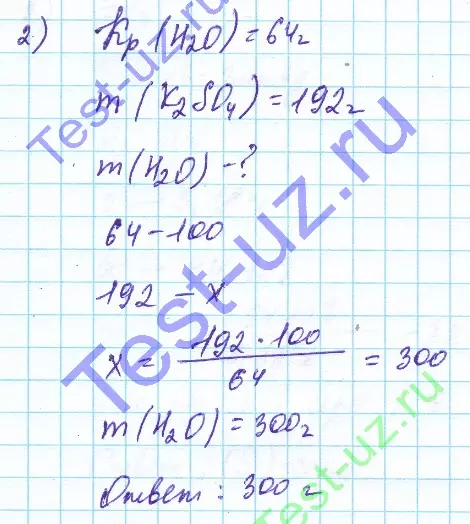 2) Kр (H₂O) = 64г
m (K₂SO₄) = 192г
m (H₂O) - ?
64 - 100
192 - x
x = 192 · 100 / 64 = 300
m (H₂O) = 300г
Ответ : 300 г
Test-uz.ru
Test-uz.ru
Test-uz.ru